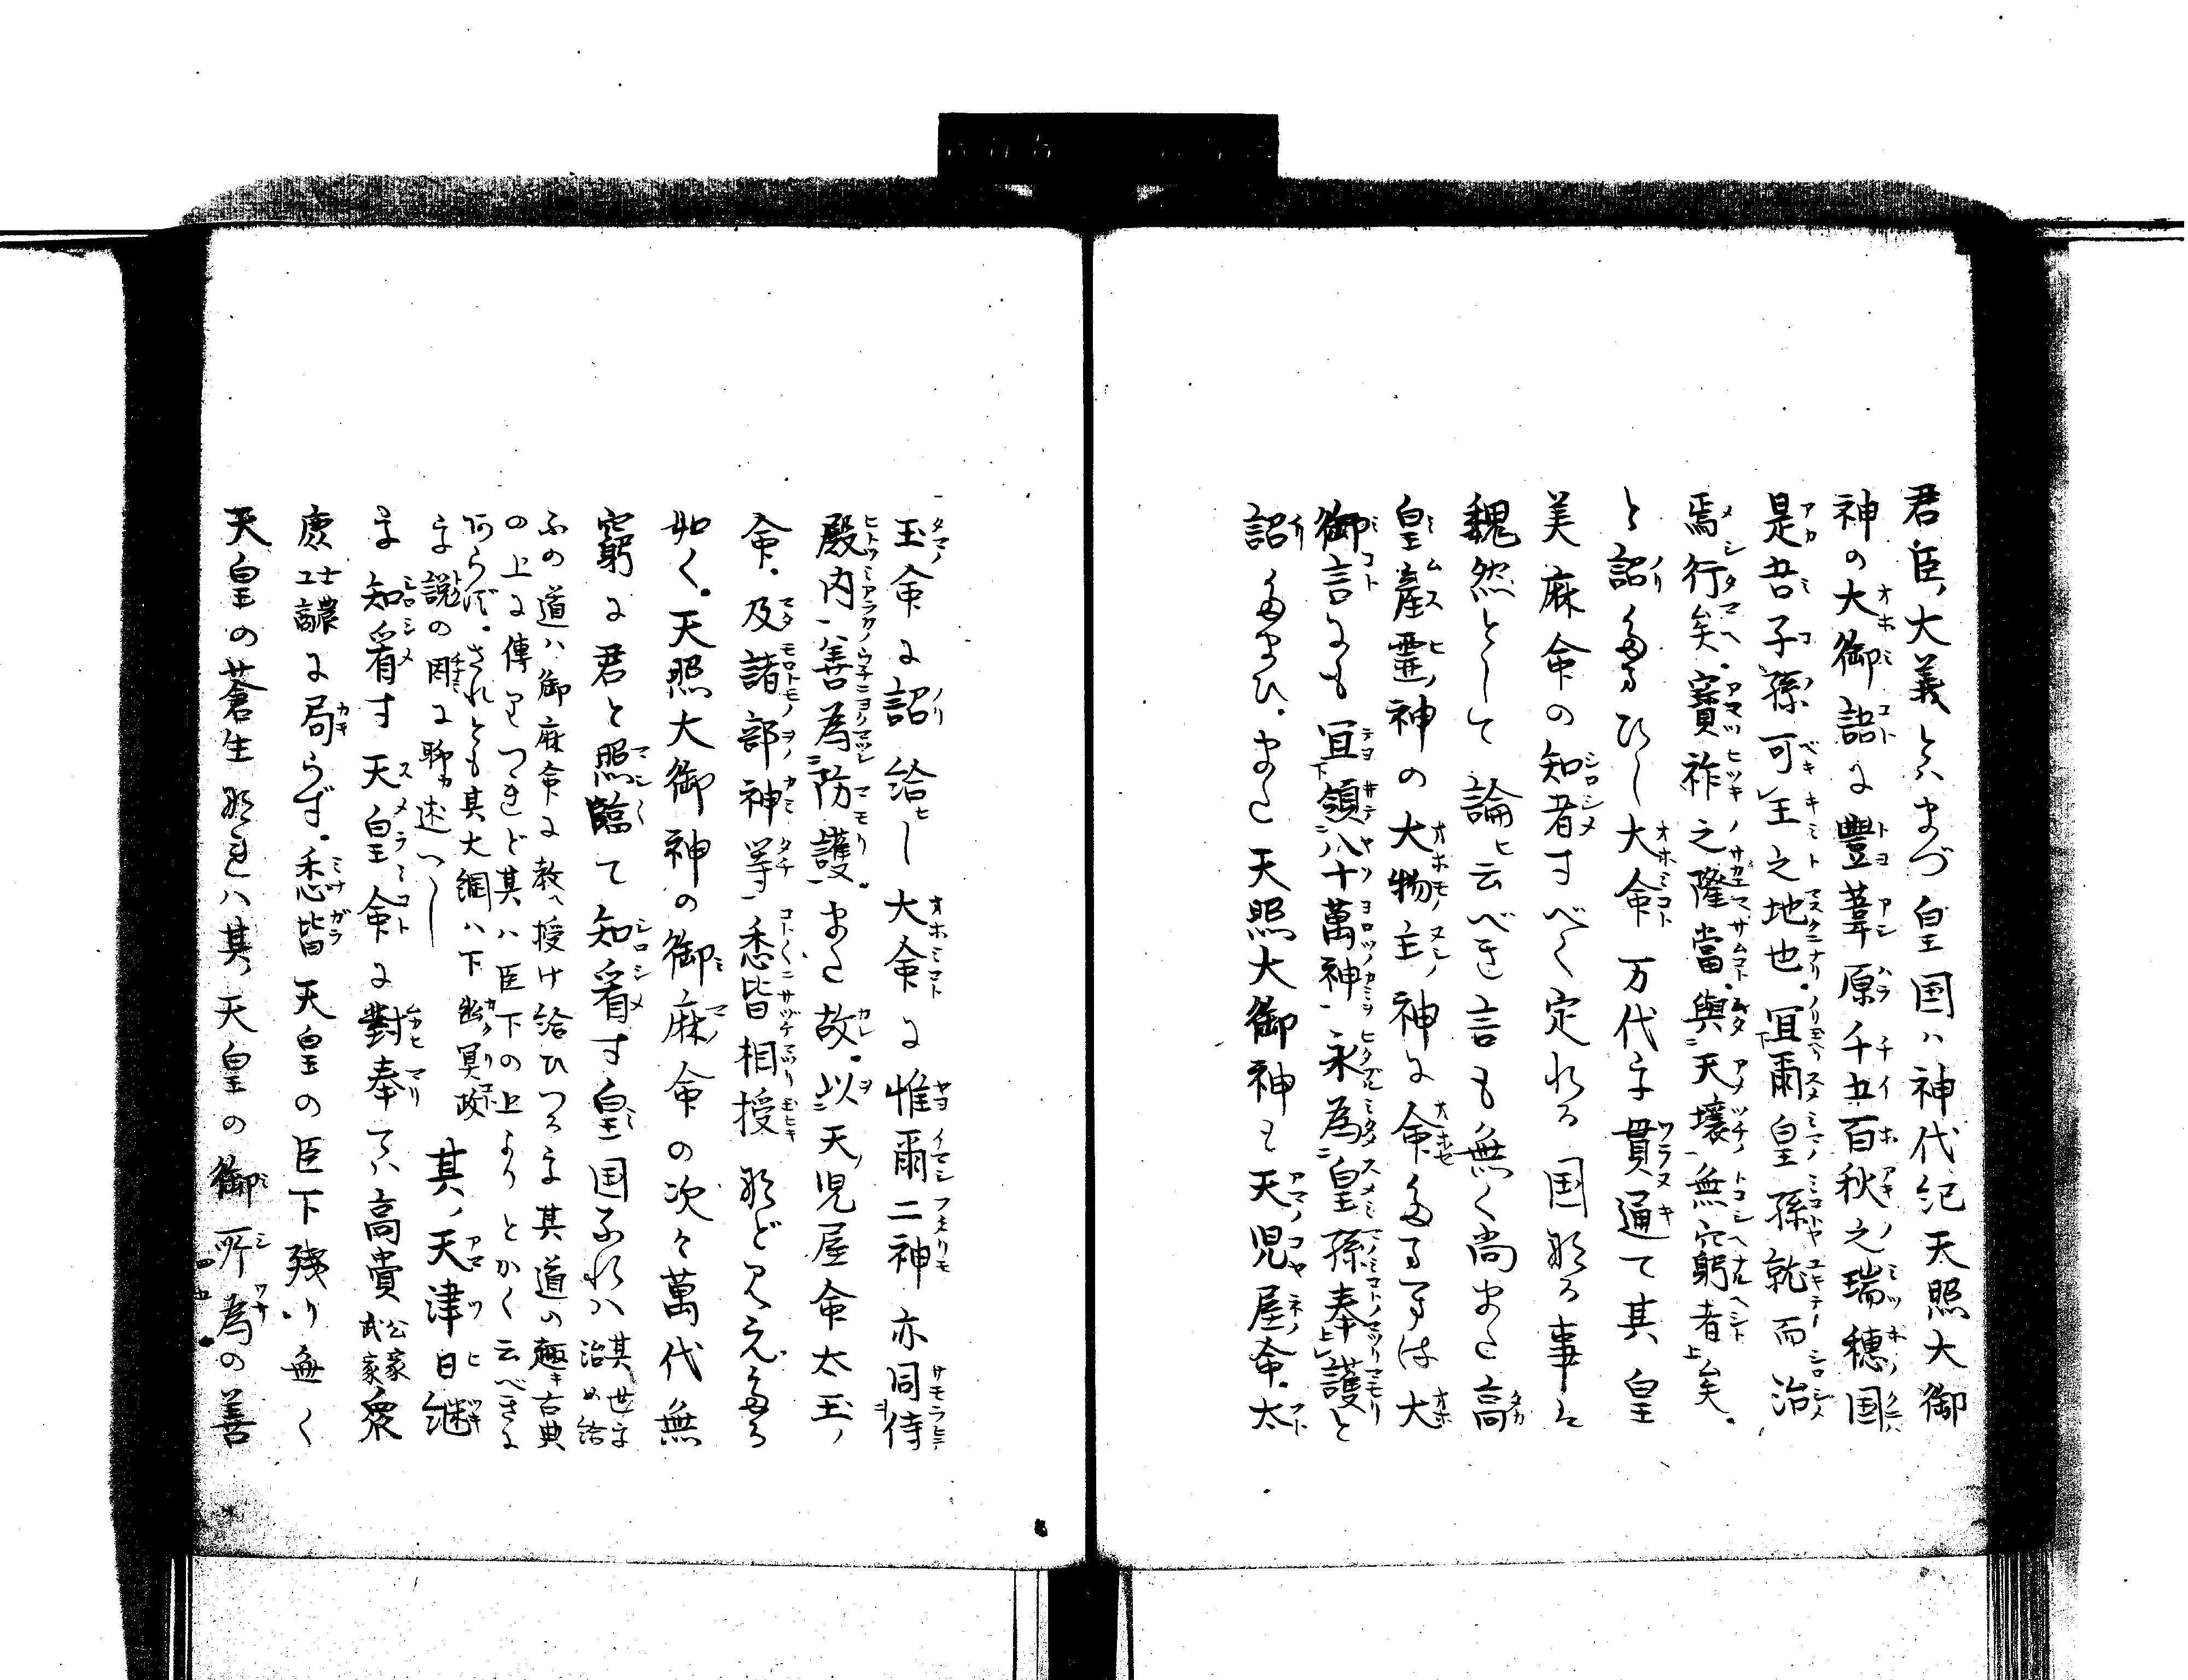 君臣ノ大義とハまづ皇国ハ神代紀天照大御
神の大御詔に豐葦原千五百秋之瑞穗国
是吾子孫可王之地也宜爾皇孫就而治
焉行矣寳祚之隆當與天壤無窮者矣
と詔たまひし大命万代に貫通て其皇
美麻命の知看すべく定れる国なる事は
巍然として論ヒ云べき言も無く尚また高
皇産靈ノ神の大物主ノ神に命たまへるは大
御言にも宜領八十萬神永為皇孫奉護と
詔たまひまた天照大御神も天児屋命太
玉命に詔給ヒし大命に惟爾二神亦同侍
殿内善為防護また故以天ノ児屋命太玉ノ
命及諸部神等悉皆相授などみえたる
如く天照大御神の御麻命の次々萬代無
窮に君と照臨て知看す皇国なれハ其世に治め給
ふの道ハ御麻命に教へ授け給ひつるに其道の趣キ古典
の上に傳りつれど其ハ臣下の上よりとかく云べきに
あらず。されとも其大綱ハ下幽冥政
を説の因に聊カ述つし 其ノ天津日継
を知看す天皇命に對奉てハ高貴公家武家衆
庶士農工に局らず悉皆天皇の臣下殘り無く
天皇の蒼生なれハ其ノ天皇の御所為の善